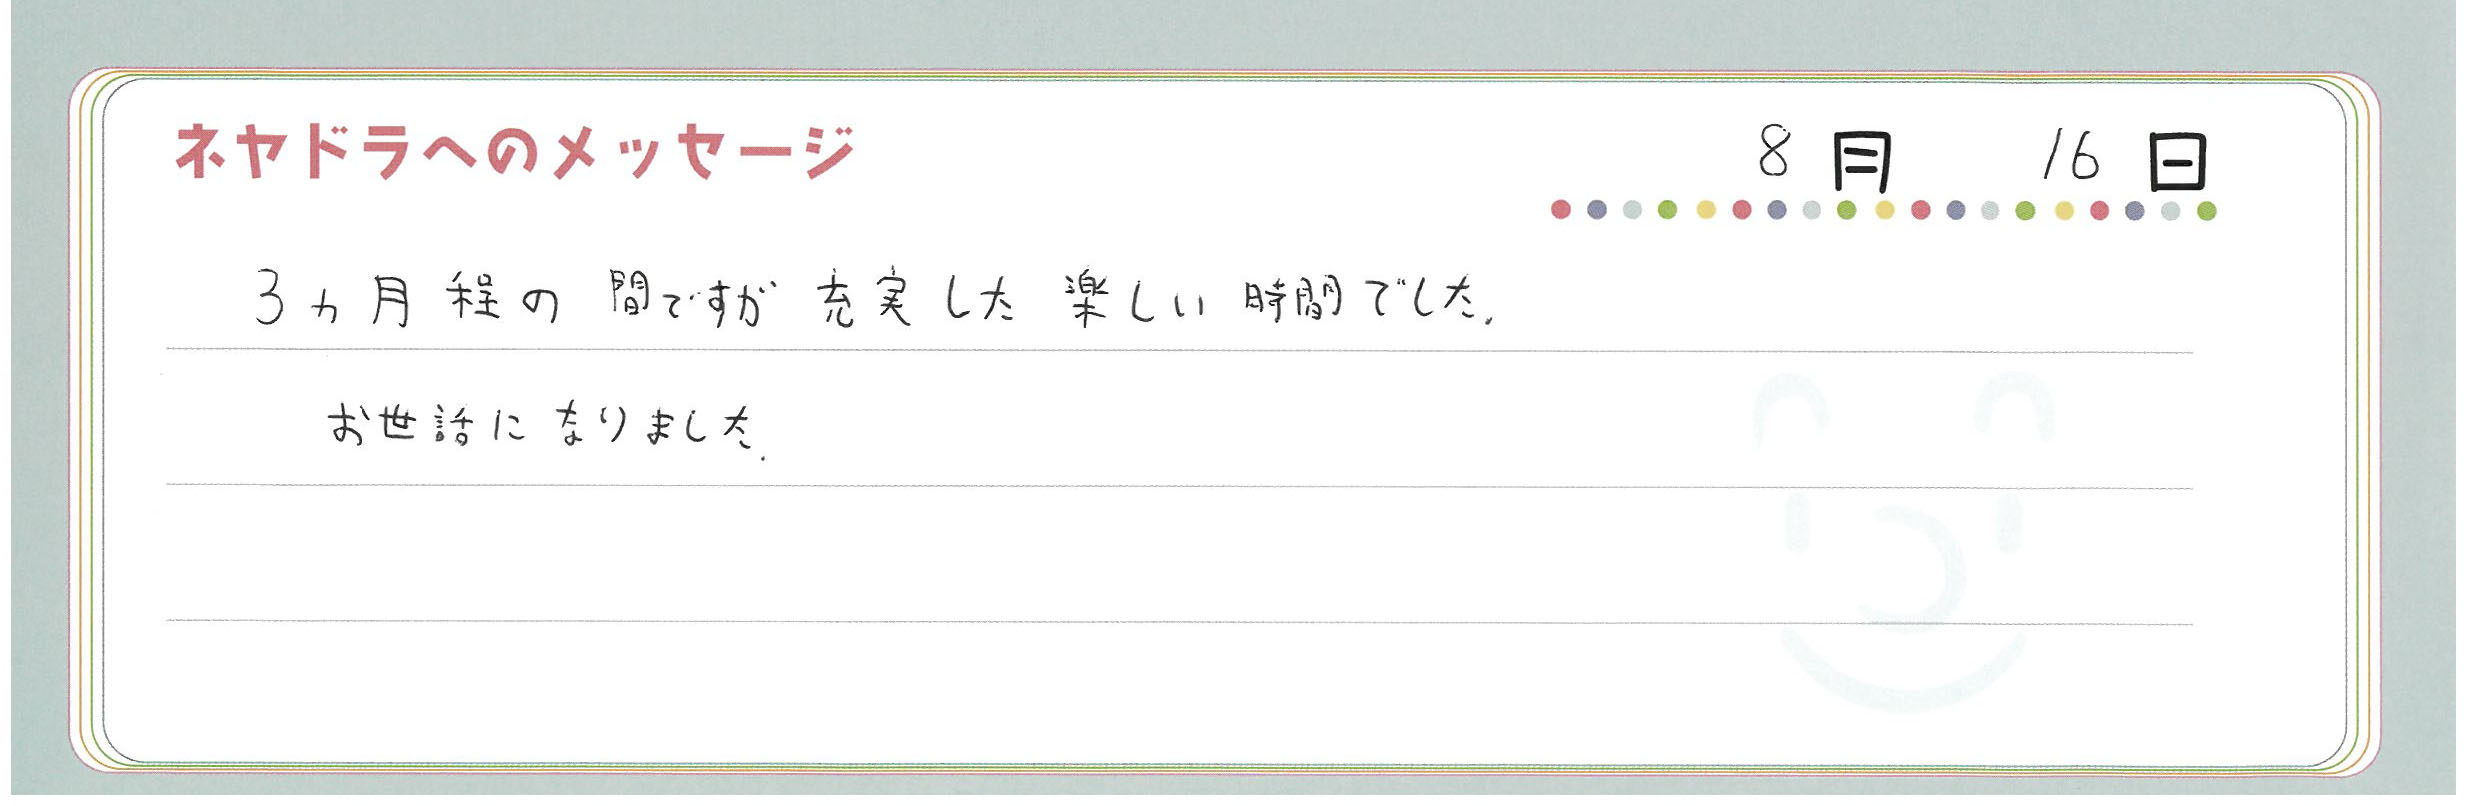 ネヤドラへのメッセージ 8月 16日
3ヵ月程の間ですが充実した楽しい時間でした.
お世話になりました.